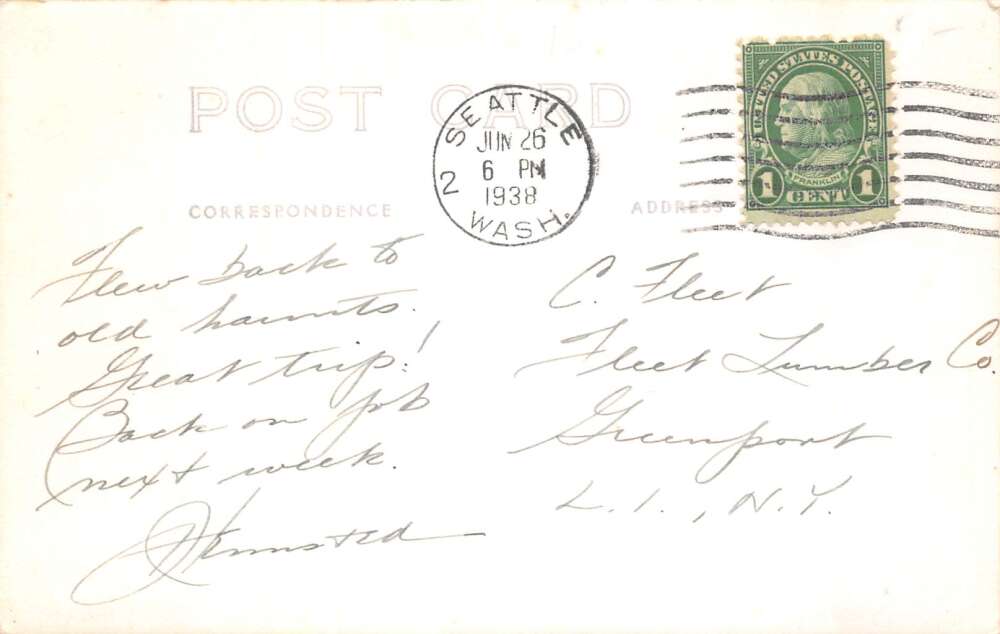 POST CARD
SEATTLE
JUN 26
6 PM
1938
WASH.
2
UNITED STATES POSTAGE
FRANKLIN
1 CENT 1
CORRESPONDENCE
ADDRESS
Flew back to
old haunts.
Great trip!
Back on job
next week.
C. Fleet
Fleet Lumber Co.
Greenport
L.I., N.Y.